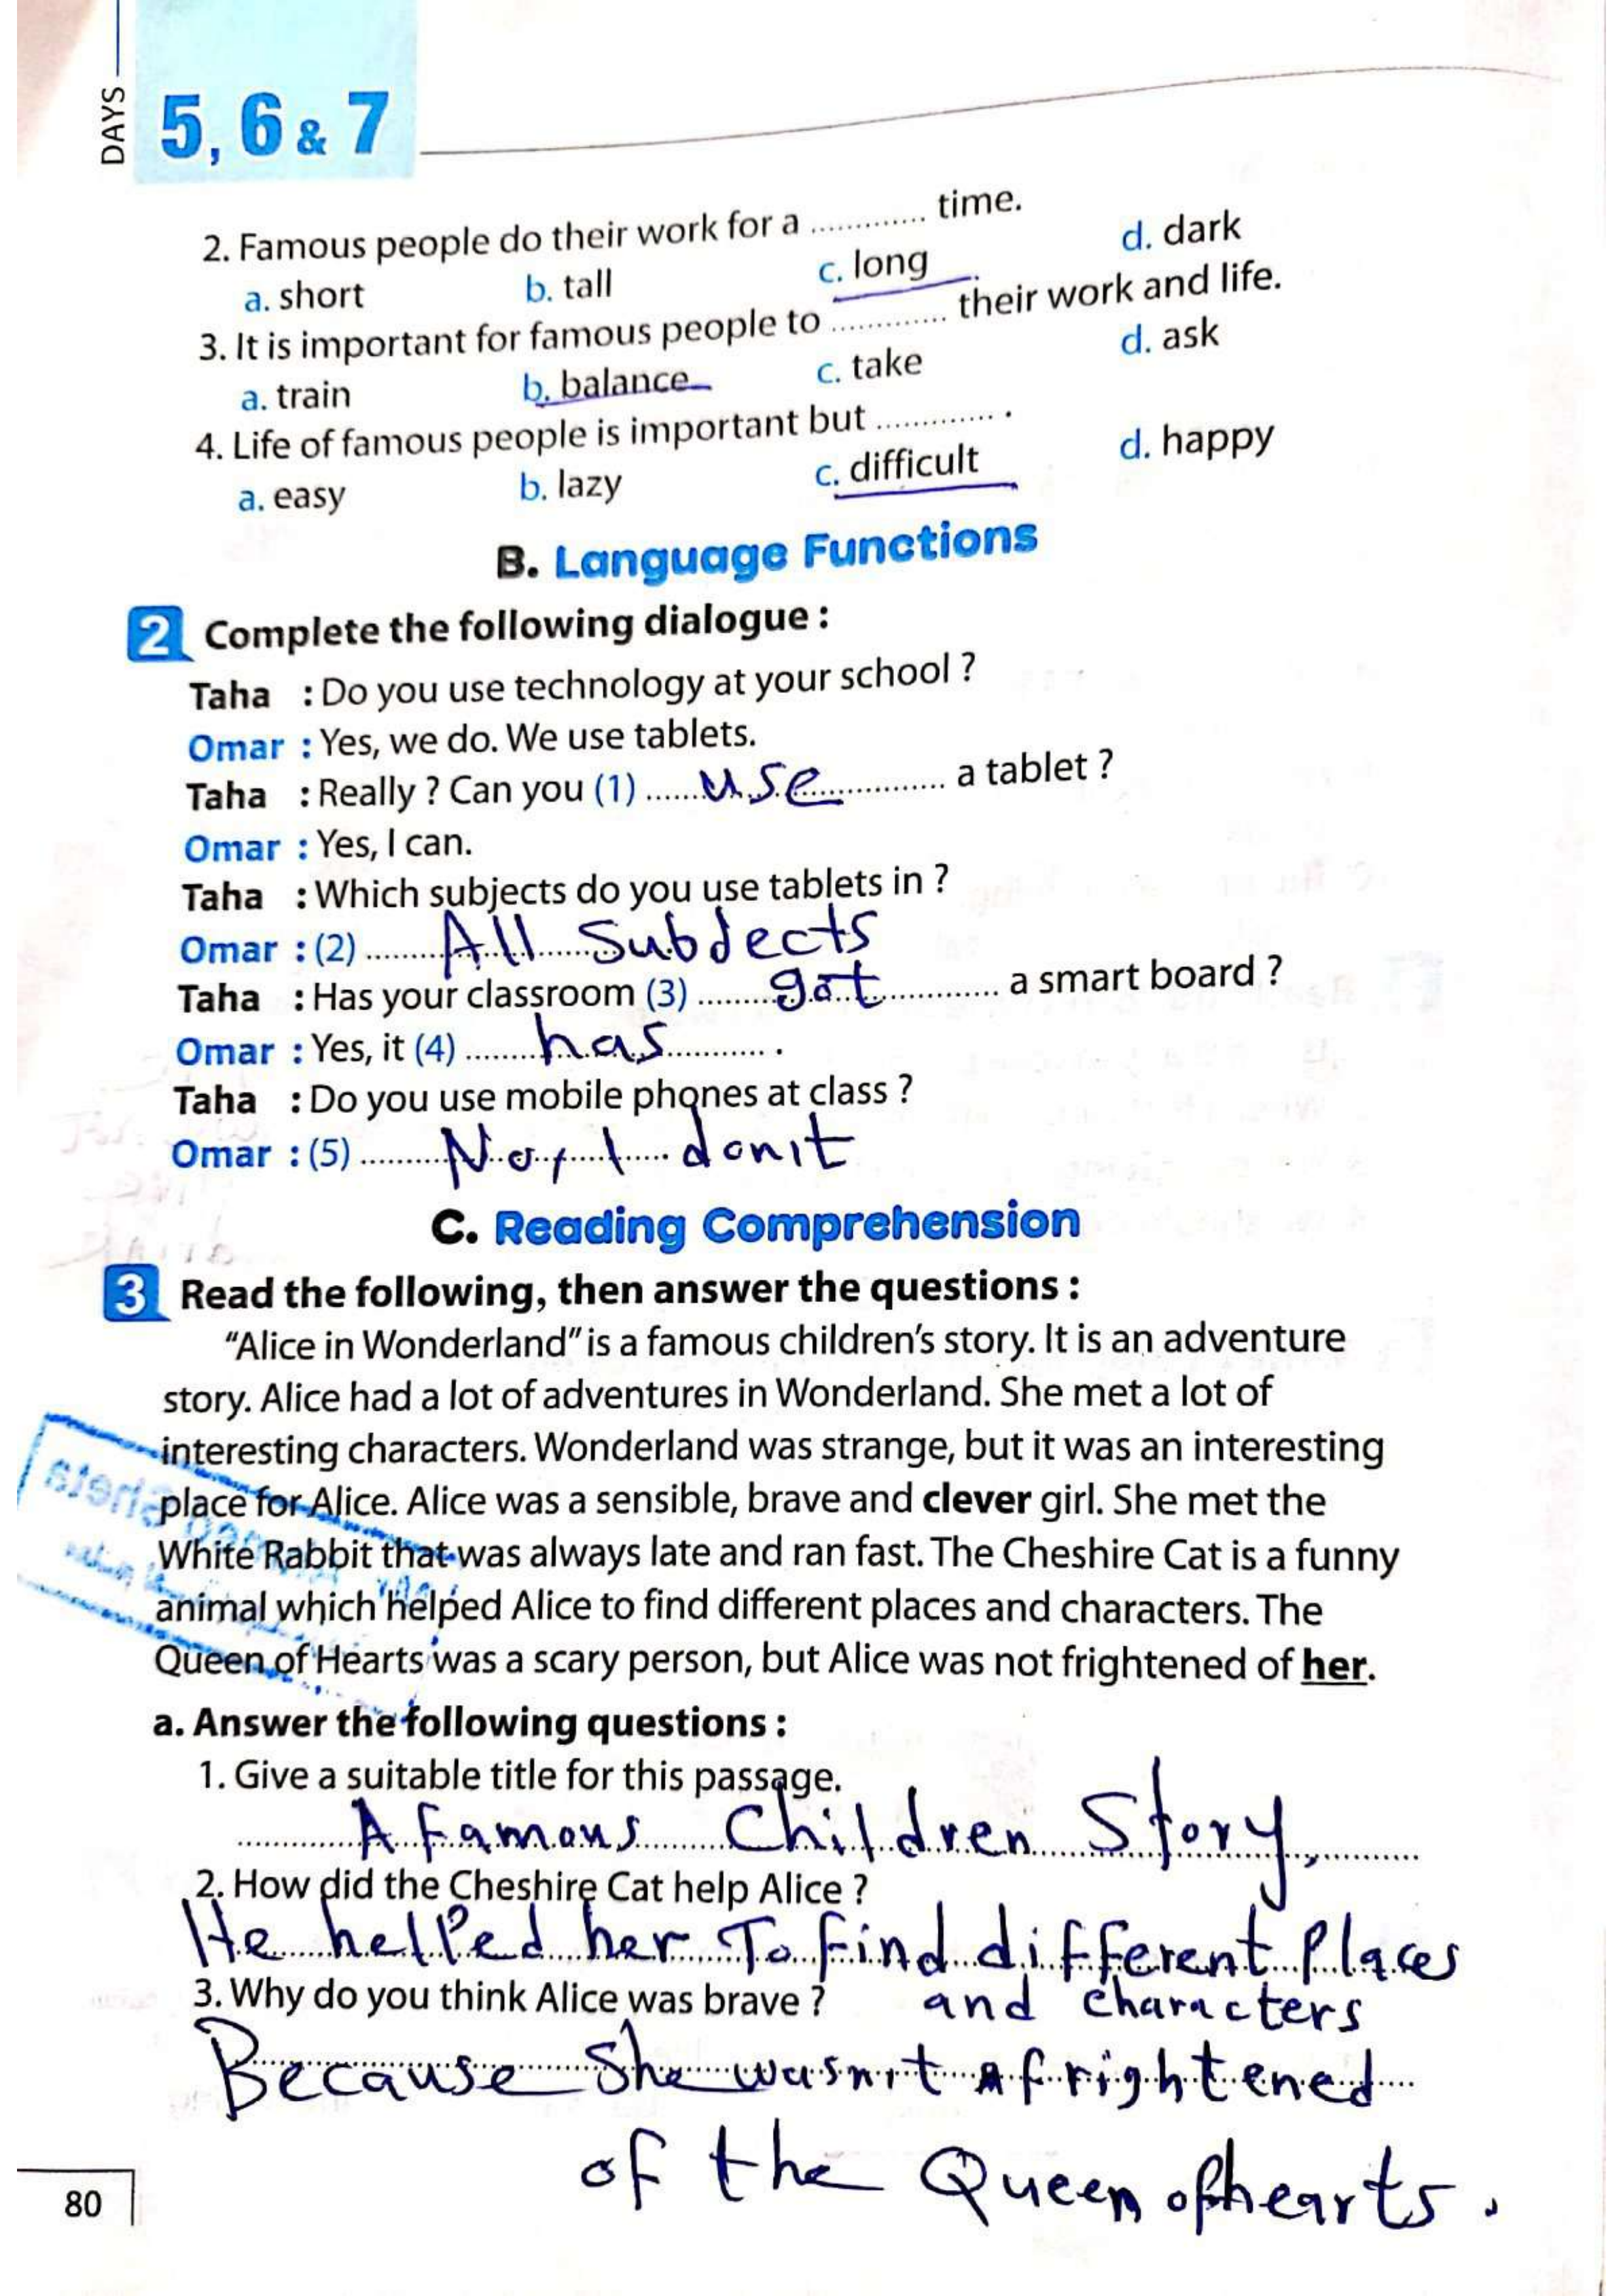 DAYS
5, 6 & 7
2. Famous people do their work for a ............ time.
a. short b. tall c. long d. dark
3. It is important for famous people to ............ their work and life.
a. train b. balance c. take d. ask
4. Life of famous people is important but ............ .
a. easy b. lazy c. difficult d. happy
B. Language Functions
2 Complete the following dialogue :
Taha : Do you use technology at your school ?
Omar : Yes, we do. We use tablets.
Taha : Really ? Can you (1) ...... use ............ a tablet ?
Omar : Yes, I can.
Taha : Which subjects do you use tablets in ?
Omar : (2) ........ All Subdects
Taha : Has your classroom (3) ........ got ............ a smart board ?
Omar : Yes, it (4) ....... has ............ .
Taha : Do you use mobile phones at class ?
Omar : (5) ......... No, I donit
C. Reading Comprehension
3 Read the following, then answer the questions :
“Alice in Wonderland” is a famous children’s story. It is an adventure
story. Alice had a lot of adventures in Wonderland. She met a lot of
interesting characters. Wonderland was strange, but it was an interesting
place for Alice. Alice was a sensible, brave and clever girl. She met the
White Rabbit that was always late and ran fast. The Cheshire Cat is a funny
animal which helped Alice to find different places and characters. The
Queen of Hearts was a scary person, but Alice was not frightened of her.
a. Answer the following questions :
1. Give a suitable title for this passage.
A Famous Children Story.
2. How did the Cheshire Cat help Alice ?
He helped her To find different Places
and characters
3. Why do you think Alice was brave ?
Because She wasnit Afrightened
of the Queen of hearts.
80